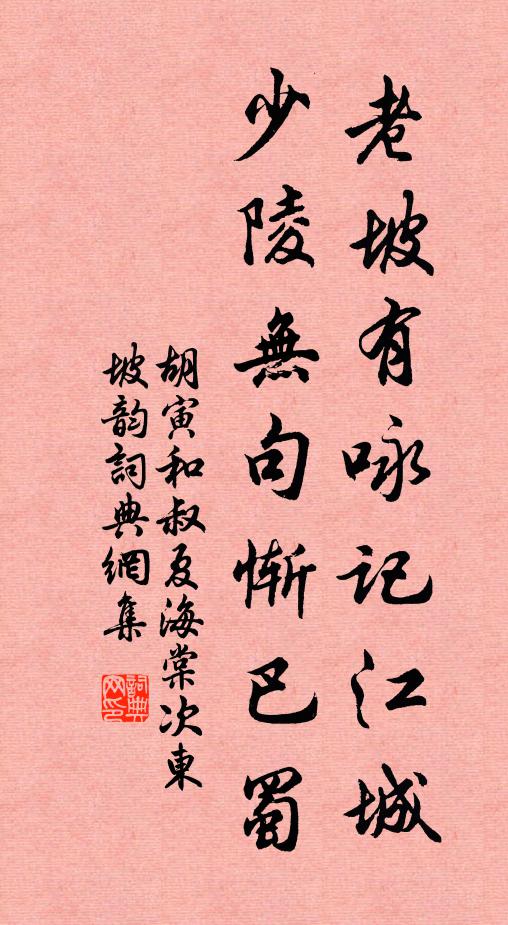 老坡有咏记江城
少陵無句慚巴蜀
胡寅和叔夏海棠次東
坡韵詞典網集
詞典
网印